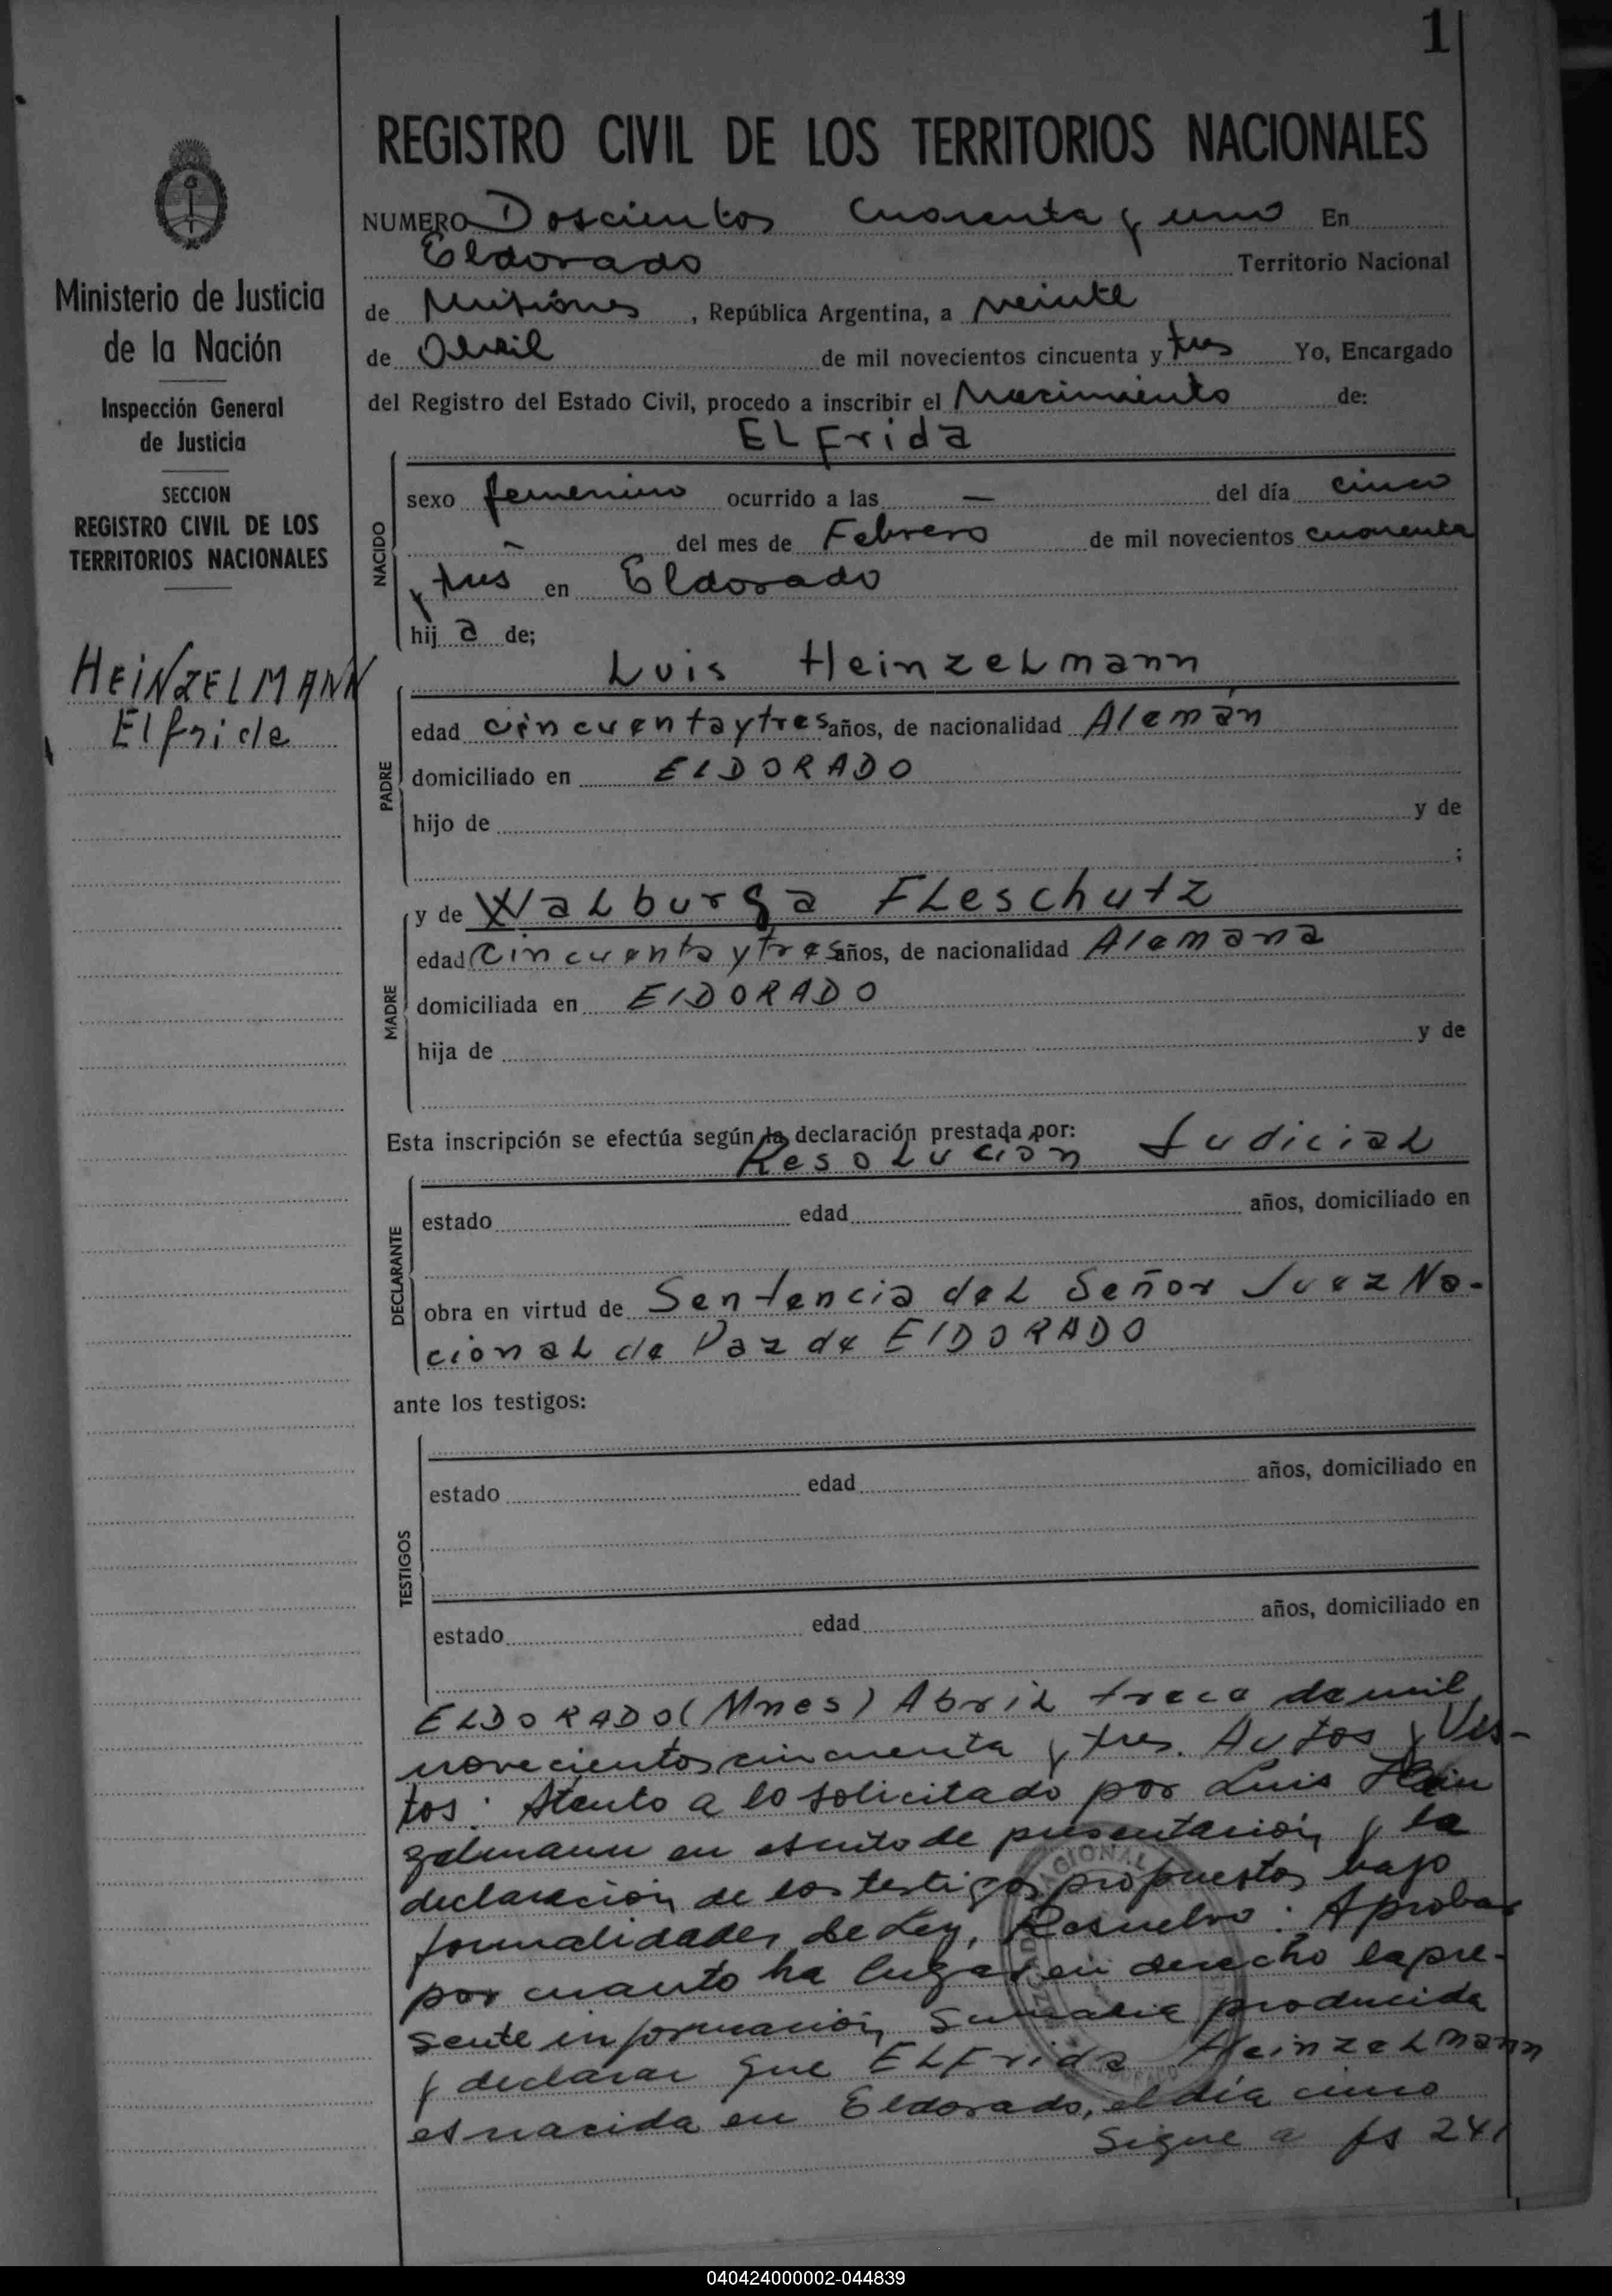 1
REGISTRO CIVIL DE LOS TERRITORIOS NACIONALES
Ministerio de Justicia
de la Nación
Inspección General
de Justicia
SECCION
REGISTRO CIVIL DE LOS
TERRITORIOS NACIONALES
HEiNZELMANN
Elfride
NUMERO Doscientos Cuarenta y uno En
Eldorado Territorio Nacional
de Misiónes, República Argentina, a veinte
de Abril de mil novecientos cincuenta y tres Yo, Encargado
del Registro del Estado Civil, procedo a inscribir el Nacimiento de:
ELFrida
NACIDO
sexo femenino ocurrido a las — del día cinco
~ del mes de Febrero de mil novecientos cuarenta
y tres en Eldorado
hija de;
Luis HeinzeLmann
PADRE
edad cincuentaytres años, de nacionalidad Alemán
domiciliado en ElDORADO
hijo de y de
;
MADRE
y de WaLburga FLeschutz
edad Cincuenta ytres años, de nacionalidad Alemana
domiciliada en ElDORADO
hija de y de
Esta inscripción se efectúa según la declaración prestada por: Judicial
ResoLucion
DECLARANTE
estado edad años, domiciliado en
obra en virtud de Sentencia deL Señor Juez Na-
cionaL de Paz de ElDORADO
ante los testigos:
TESTIGOS
estado edad años, domiciliado en
estado edad años, domiciliado en
ELDORADO (Mnes) AbriL trece de mil
novecientos cincuenta y tres. Autos y Vis-
tos: Atento a lo solicitado por Luis Hein
zelmann en escrito de presentación y la
declaración de los testigos propuestos bajo
formalidades de Ley, Resuelvo: Aprobar
por cuanto ha lugar en derecho la pre-
sente información Sumaria producida
y declarar que ELFrida HeinzeLmann
es nacida en Eldorado, el día cinco
Sigue a fs 241
040424000002-044839